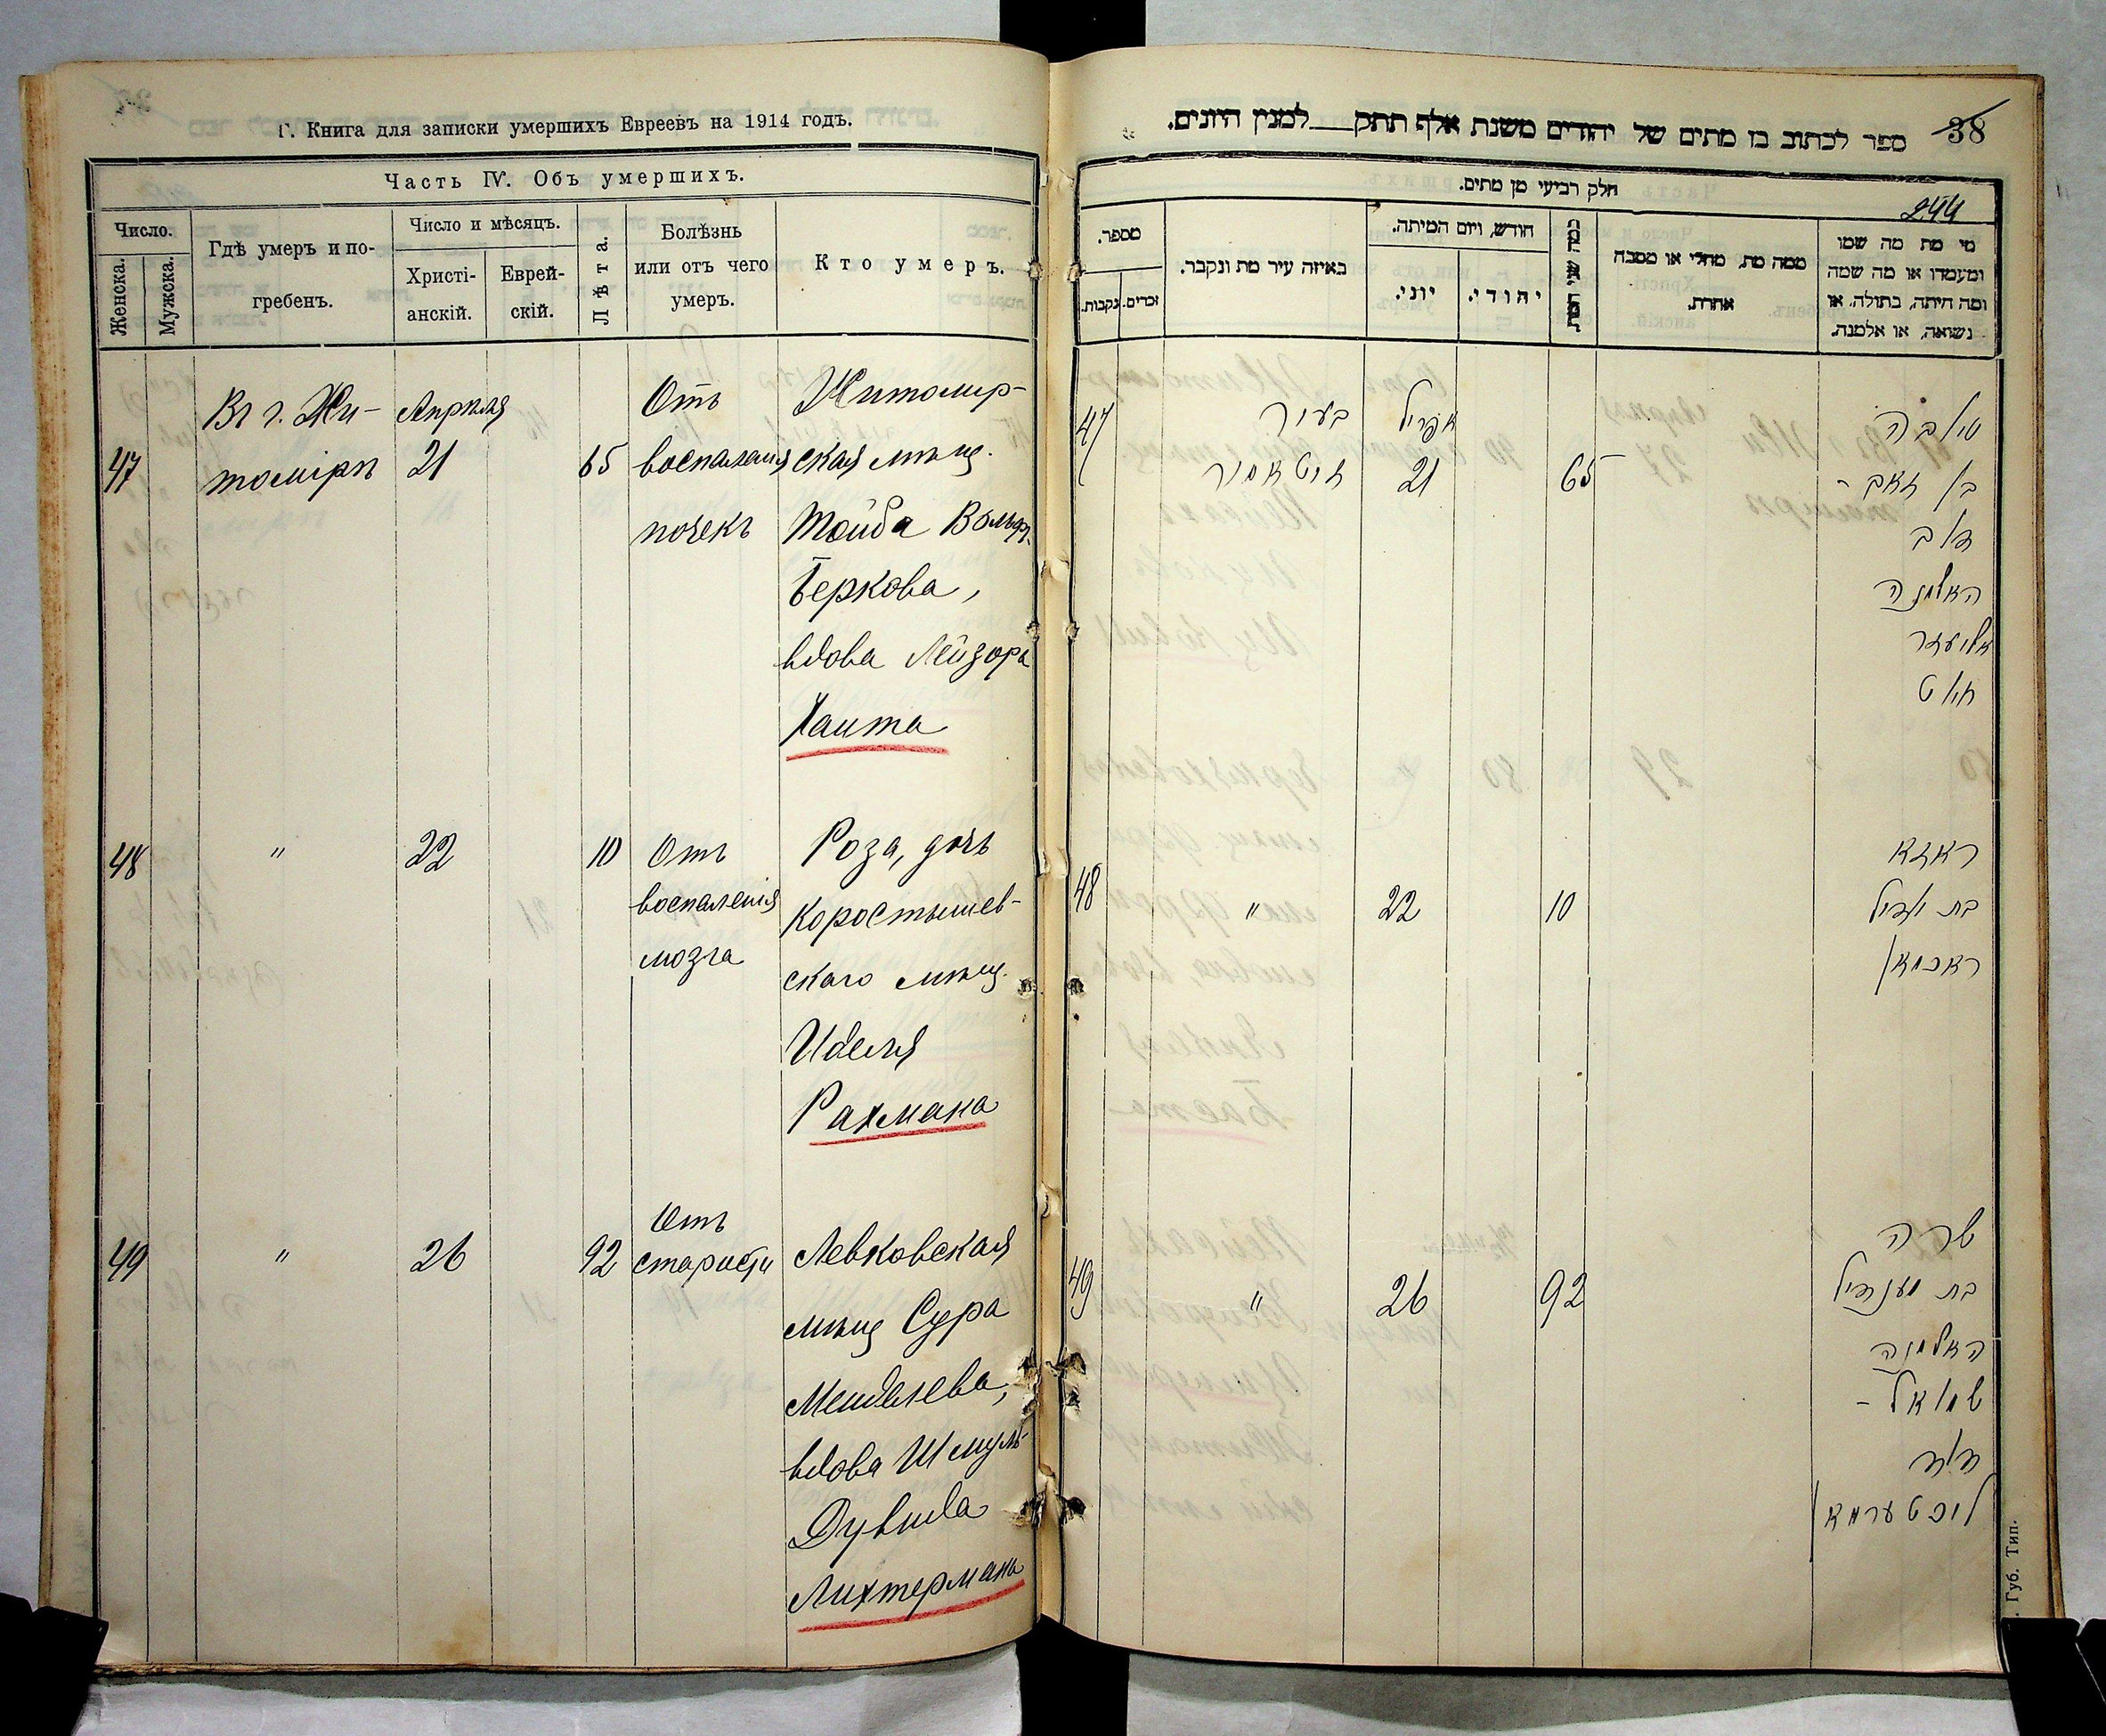 Г. Книга для записки умершихъ Евреевъ на 1914 годъ.
Часть IV. Объ умершихъ.
Число.
Женска.
Мужска.
Гдѣ умеръ и по-
гребенъ.
Число и мѣсяцъ.
Христі-
анскій.
Еврей-
скій.
Лѣта.
Болѣзнь
или отъ чего
умеръ.
Кто умеръ.
47
Въ г. Жи-
томірѣ
Апрѣля
21
65
Отъ
воспаленія
почекъ
Житомир-
ская мѣщ.
Тойба Вольф-
Беркова,
вдова Лейзора
Хаита
48
"
22
10
Отъ
воспаленія
мозга
Роза, дочь
Коростышев-
скаго мѣщ.
Иделя
Рахмана
49
"
26
92
Отъ
старости
Левковская
мѣщ Сура
Менделева,
вдова Шмуль
Дувида
Лихтермана
ספר לכתוב בו מתים של יהודים משנת אלף תתק למנין היונים.
38
חלק רביעי מן מתים.
244
מספר.
נקבות.
זכרים.
באיזה עיר מת ונקבר.
חודש, ויום המיתה.
יוני.
יהודי.
ממה מת, מחלי או מסבה
אחרת.
מי מת מה שמו
ומעמדו או מה שמה
ומה היתה, בתולה, או
נשואה, או אלמנה.
47
בעיר
זיטאמיר
אפריל
21
65
טויבה
בן זאב -
האלמנה
אליעזר
חייט
48
"
22
10
ראזא
בת יודיל
ראכמאן
49
"
26
92
שרה
בת מענדיל
האלמנה
שמואל -
דוד
ליכטערמאן
Губ. Тип.